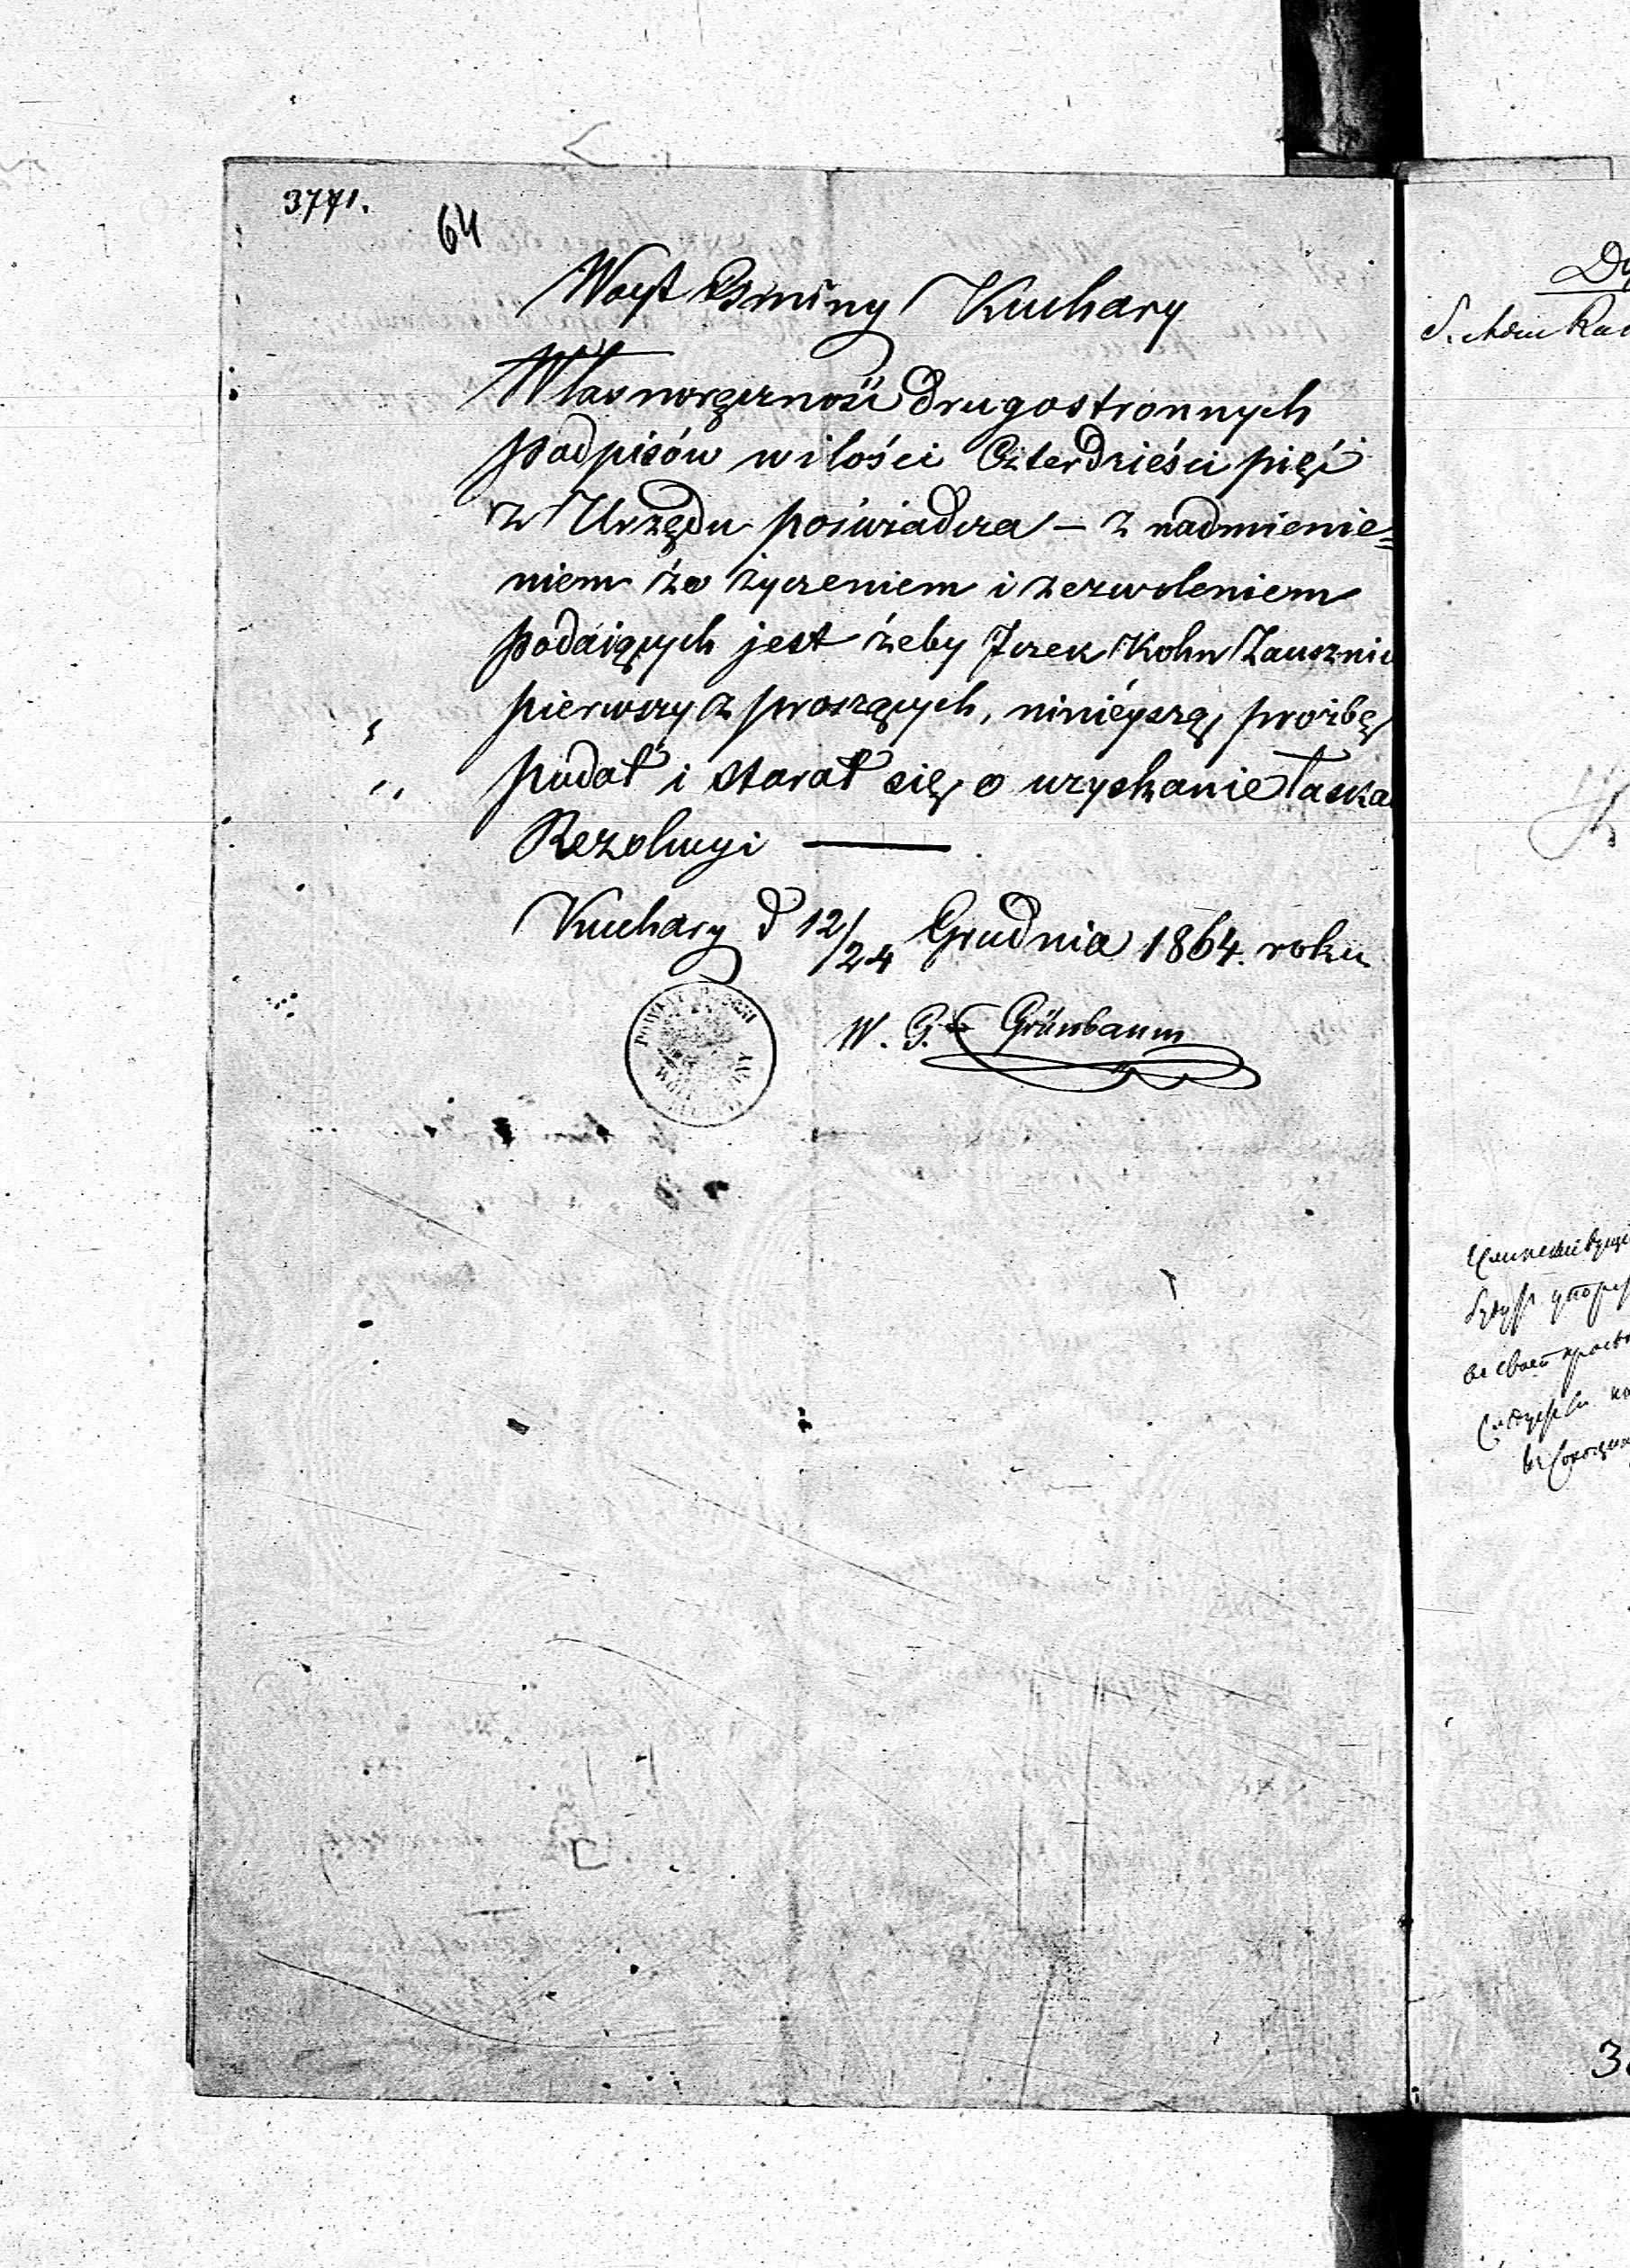 3771.
64
Woyt Gminy Kuchary
Własnoręczność drugostronnych
podpisów w ilości Czterdzieści pięć
z Urzędu poświadcza – z nadmienie=
niem że życzeniem i zezwoleniem
podaiących jest żeby Icek Kohn Zausznic
pierwszy z proszących, niniéyszą prożbę
podał i starał się o uzyskanie łaska
Rezolucyi —
Kuchary d 12/24 Grudnia 1864. roku
W. G. Grünbaum
POWIAT
WÓYT GMINY